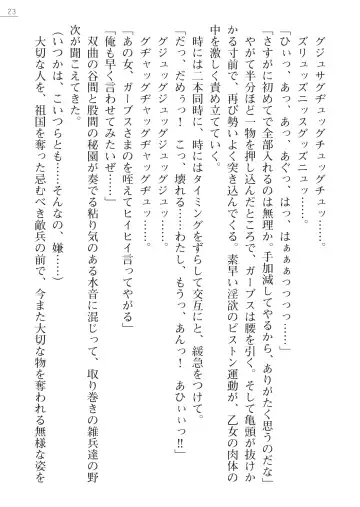 23
グジュサグヂュッグチュッグチュッ……。
ズリュッズニャッスグッズニュッ……。
「ひぃっ、あっ、あっ、あぐっ、はっ、はぁぁぁっっっ……」
「さすがに初めてで全部入れるのは無理か。手加減してやるから、ありがたく思うのだな」
やがて半分ほど一物を押し込んだところで、ガープスは腰を引く。そして亀頭が抜けか
かる寸前で、再び勢いよく突き込んでくる。素早い淫欲のピストン運動が、乙女の肉体の
中を激しく責め立てていく。
時には二本同時に、時にはタイミングをずらして交互にと、緩急をつけて。
「だっ、だめぇぅっ！　こっ、壊れる……わたし、もうっ、あんっ！　あひぃぃっ‼」
グジュッグジュッグジュッグジュッ……。
グヂャッグヂャッグヂャグヂュッ……。
「あの女、ガープスさまのを咥えてヒイヒイ言ってやがる」
「俺も早く言わせてみたいぜ……」
双曲の谷間と股間の秘園が奏でる粘り気のある水音に混じって、取り巻きの雑兵達の野
次が聞こえてきた。
（いつかは、こいつらとも……そんなの、嫌……）
大切な人を、祖国を奪った忌むべき敵兵の前で、今また大切な物を奪われる無様な姿を